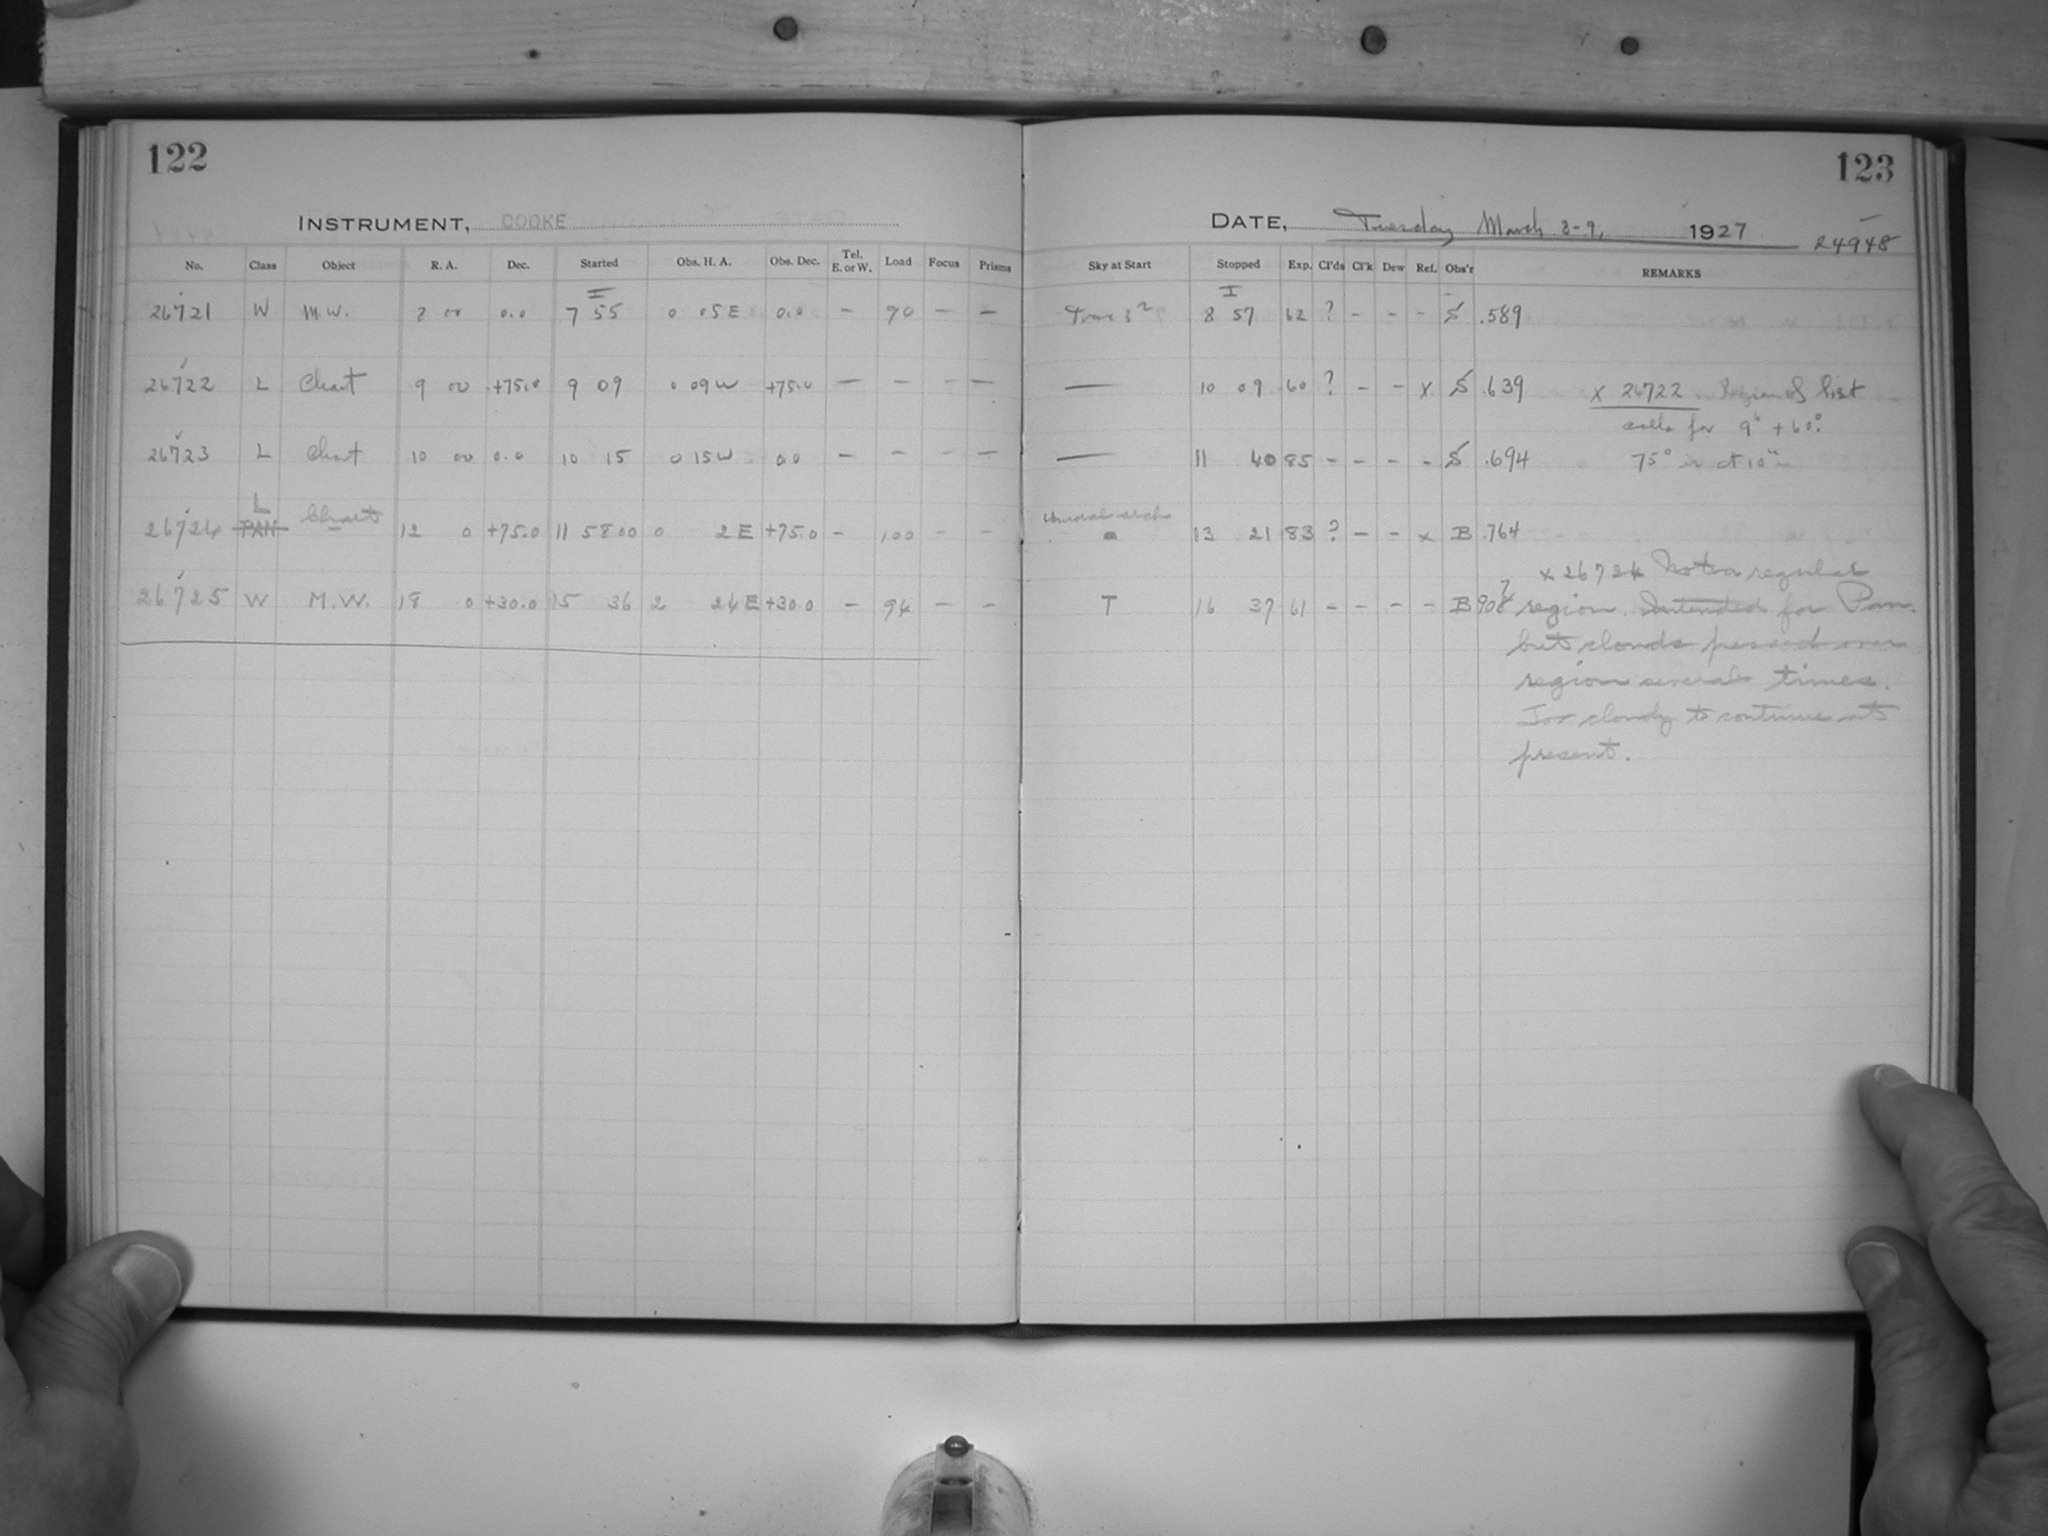 122
INSTRUMENT, COOKE
No. Class Object R. A. Dec. Started Obs. H. A. Obs. Dec. Tel. E. or W. Load Focus Prisms
26721 W M.W. 8 00 0.0 7 55 0 05 E 0.0 – 90 – –
26722 L Chart 9 00 +75.0 9 09 0 09 W +75.0 – – – –
26723 L Chart 10 00 0.0 10 15 0 15 W 0.0 – – – –
26724 L PAN Chart 12 0 +75.0 11 58 00 0 2 E +75.0 – 100 – –
26725 W M.W. 18 0 +30.0 15 36 2 24 E +30.0 – 94 – –
123
DATE, Tuesday March 8-9, 1927 24948
Sky at Start Stopped Exp. Cl'ds Cl'k Dew Ref. Obs'r REMARKS
8 57 62 ? – – – S .589
— 10 09 60 ? – – X S .639 X 26722 list
calls for 9h +60°
— 11 40 85 – – – – S .694 75° is at 10h
Auroral arch
13 21 83 ? – – x B .764
x 26724 Not a regular
T 16 37 61 – – – – B 907 region. Intended for Pan.
but clouds passed over
region several times.
Too cloudy to continue at
present.